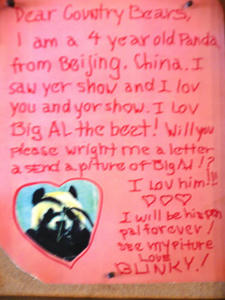 Dear Country Bears,
I am a 4 year old Panda
from Beijing, China. I
saw yer show and I lov
you and yor show. I lov
Big AL the best! Will you
please wright me a letter
a send a piture of Big Al!?
I Lov him!!!
I will be his pen
pal forever!
see my piture
LOVE
BLINKY!